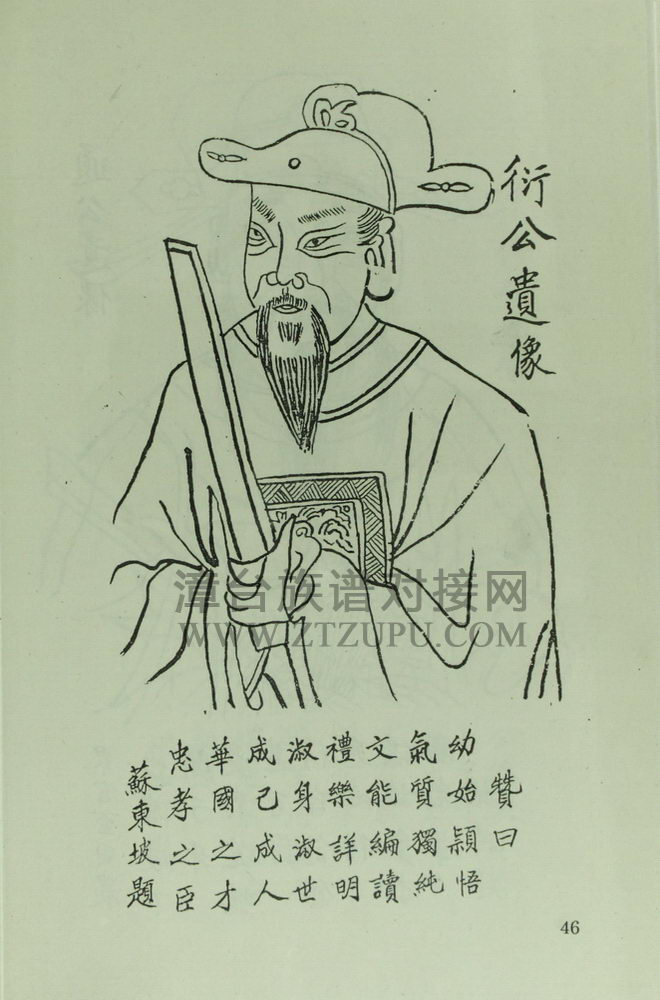 衍公遺像
漳台族谱对接网
WWW.ZTZUPU.COM
贊曰
幼始穎悟
氣質獨純
文能編讀
禮樂詳明
淑身淑世
成己成人
華國之才
忠孝之臣
蘇東坡題
46